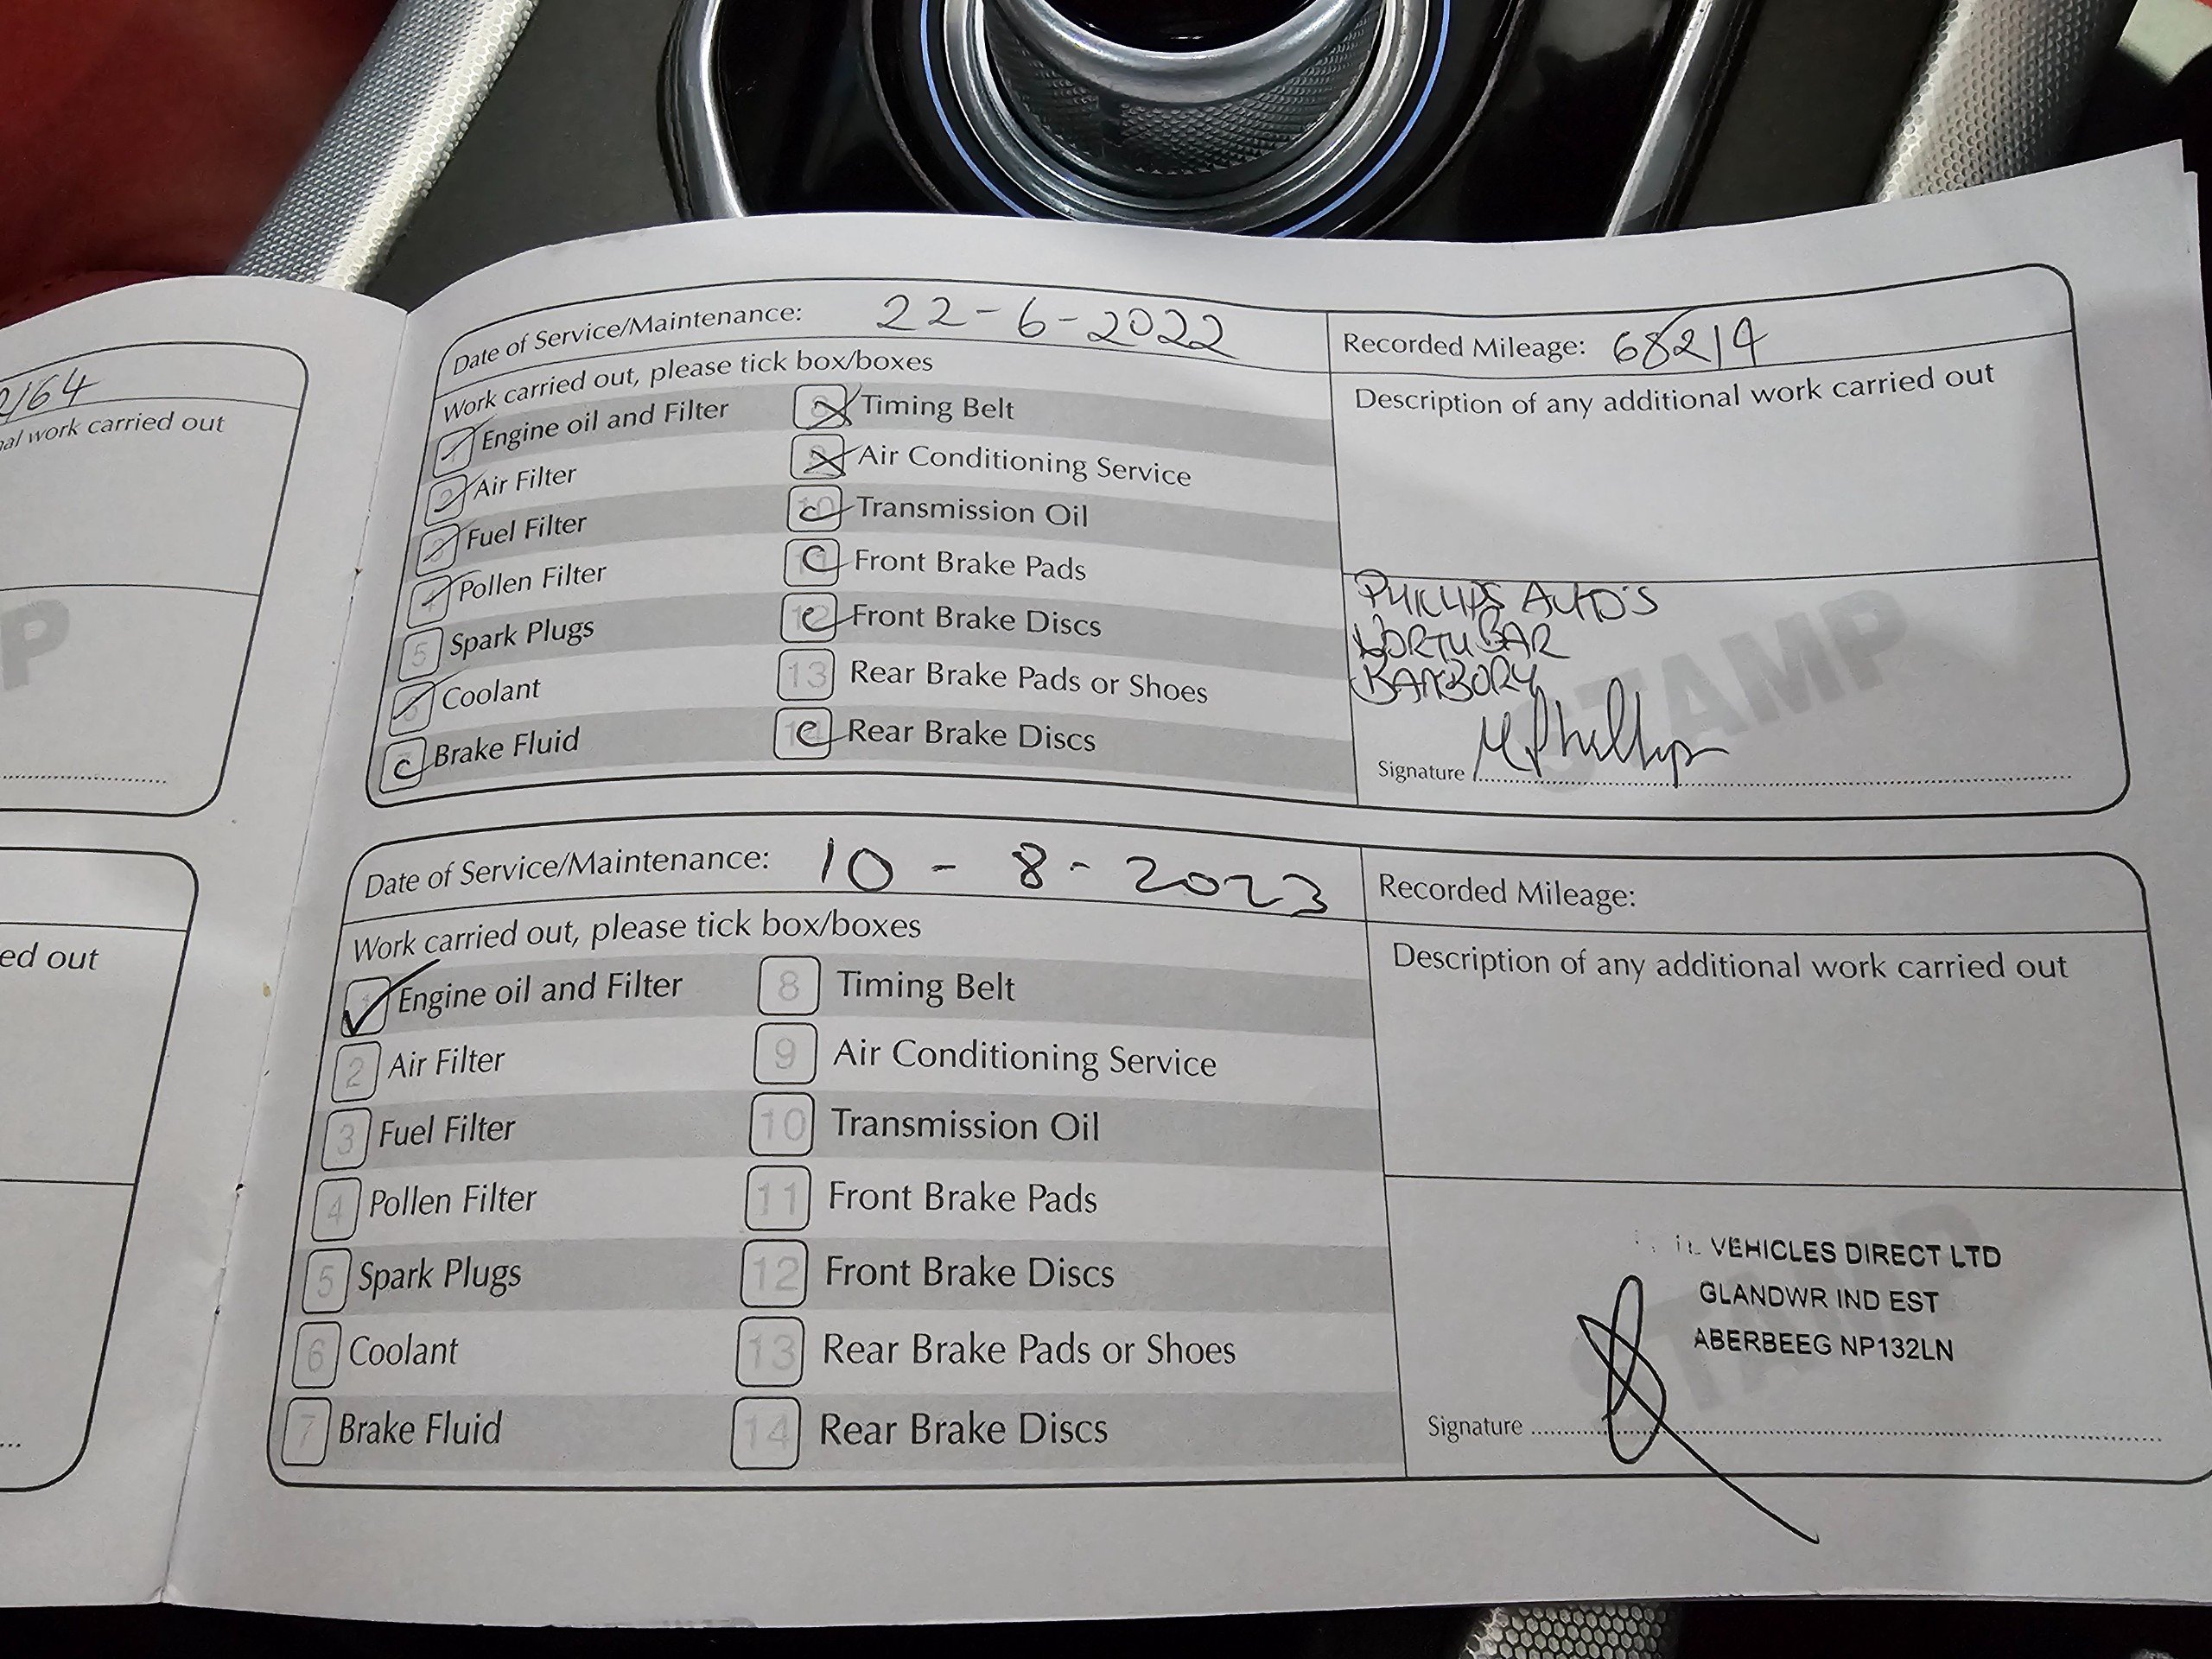 2164
nal work carried out
P
ed out
Date of Service/Maintenance: 22-6-2022
Recorded Mileage: 68214
Work carried out, please tick box/boxes
Description of any additional work carried out
Engine oil and Filter
Air Filter
Fuel Filter
Pollen Filter
5 Spark Plugs
Coolant
C Brake Fluid
Timing Belt
Air Conditioning Service
C Transmission Oil
C Front Brake Pads
C Front Brake Discs
13 Rear Brake Pads or Shoes
C Rear Brake Discs
PHILLIPS AUTO'S
NORTH BAR
BANBURY
STAMP
Signature M Phillips
Date of Service/Maintenance: 10 - 8 - 2023
Recorded Mileage:
Work carried out, please tick box/boxes
Description of any additional work carried out
1 Engine oil and Filter
2 Air Filter
3 Fuel Filter
4 Pollen Filter
5 Spark Plugs
6 Coolant
7 Brake Fluid
8 Timing Belt
9 Air Conditioning Service
10 Transmission Oil
11 Front Brake Pads
12 Front Brake Discs
13 Rear Brake Pads or Shoes
14 Rear Brake Discs
VEHICLES DIRECT LTD
GLANDWR IND EST
ABERBEEG NP132LN
STAMP
Signature